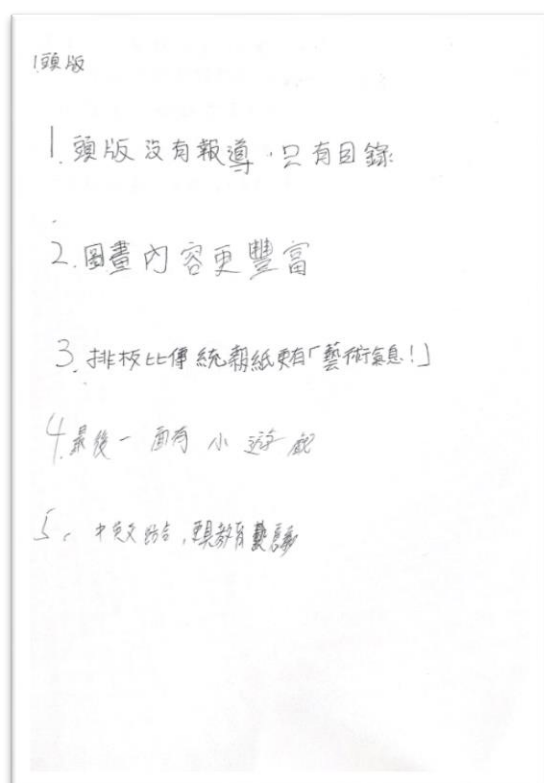 1頭版
1. 頭版沒有報導,只有目錄
2. 圖畫內容更豐富
3. 排板比傳統報紙更有「藝術氣息!」
4. 最後一面有小遊戲
5. 中英文結合,更具教育意義